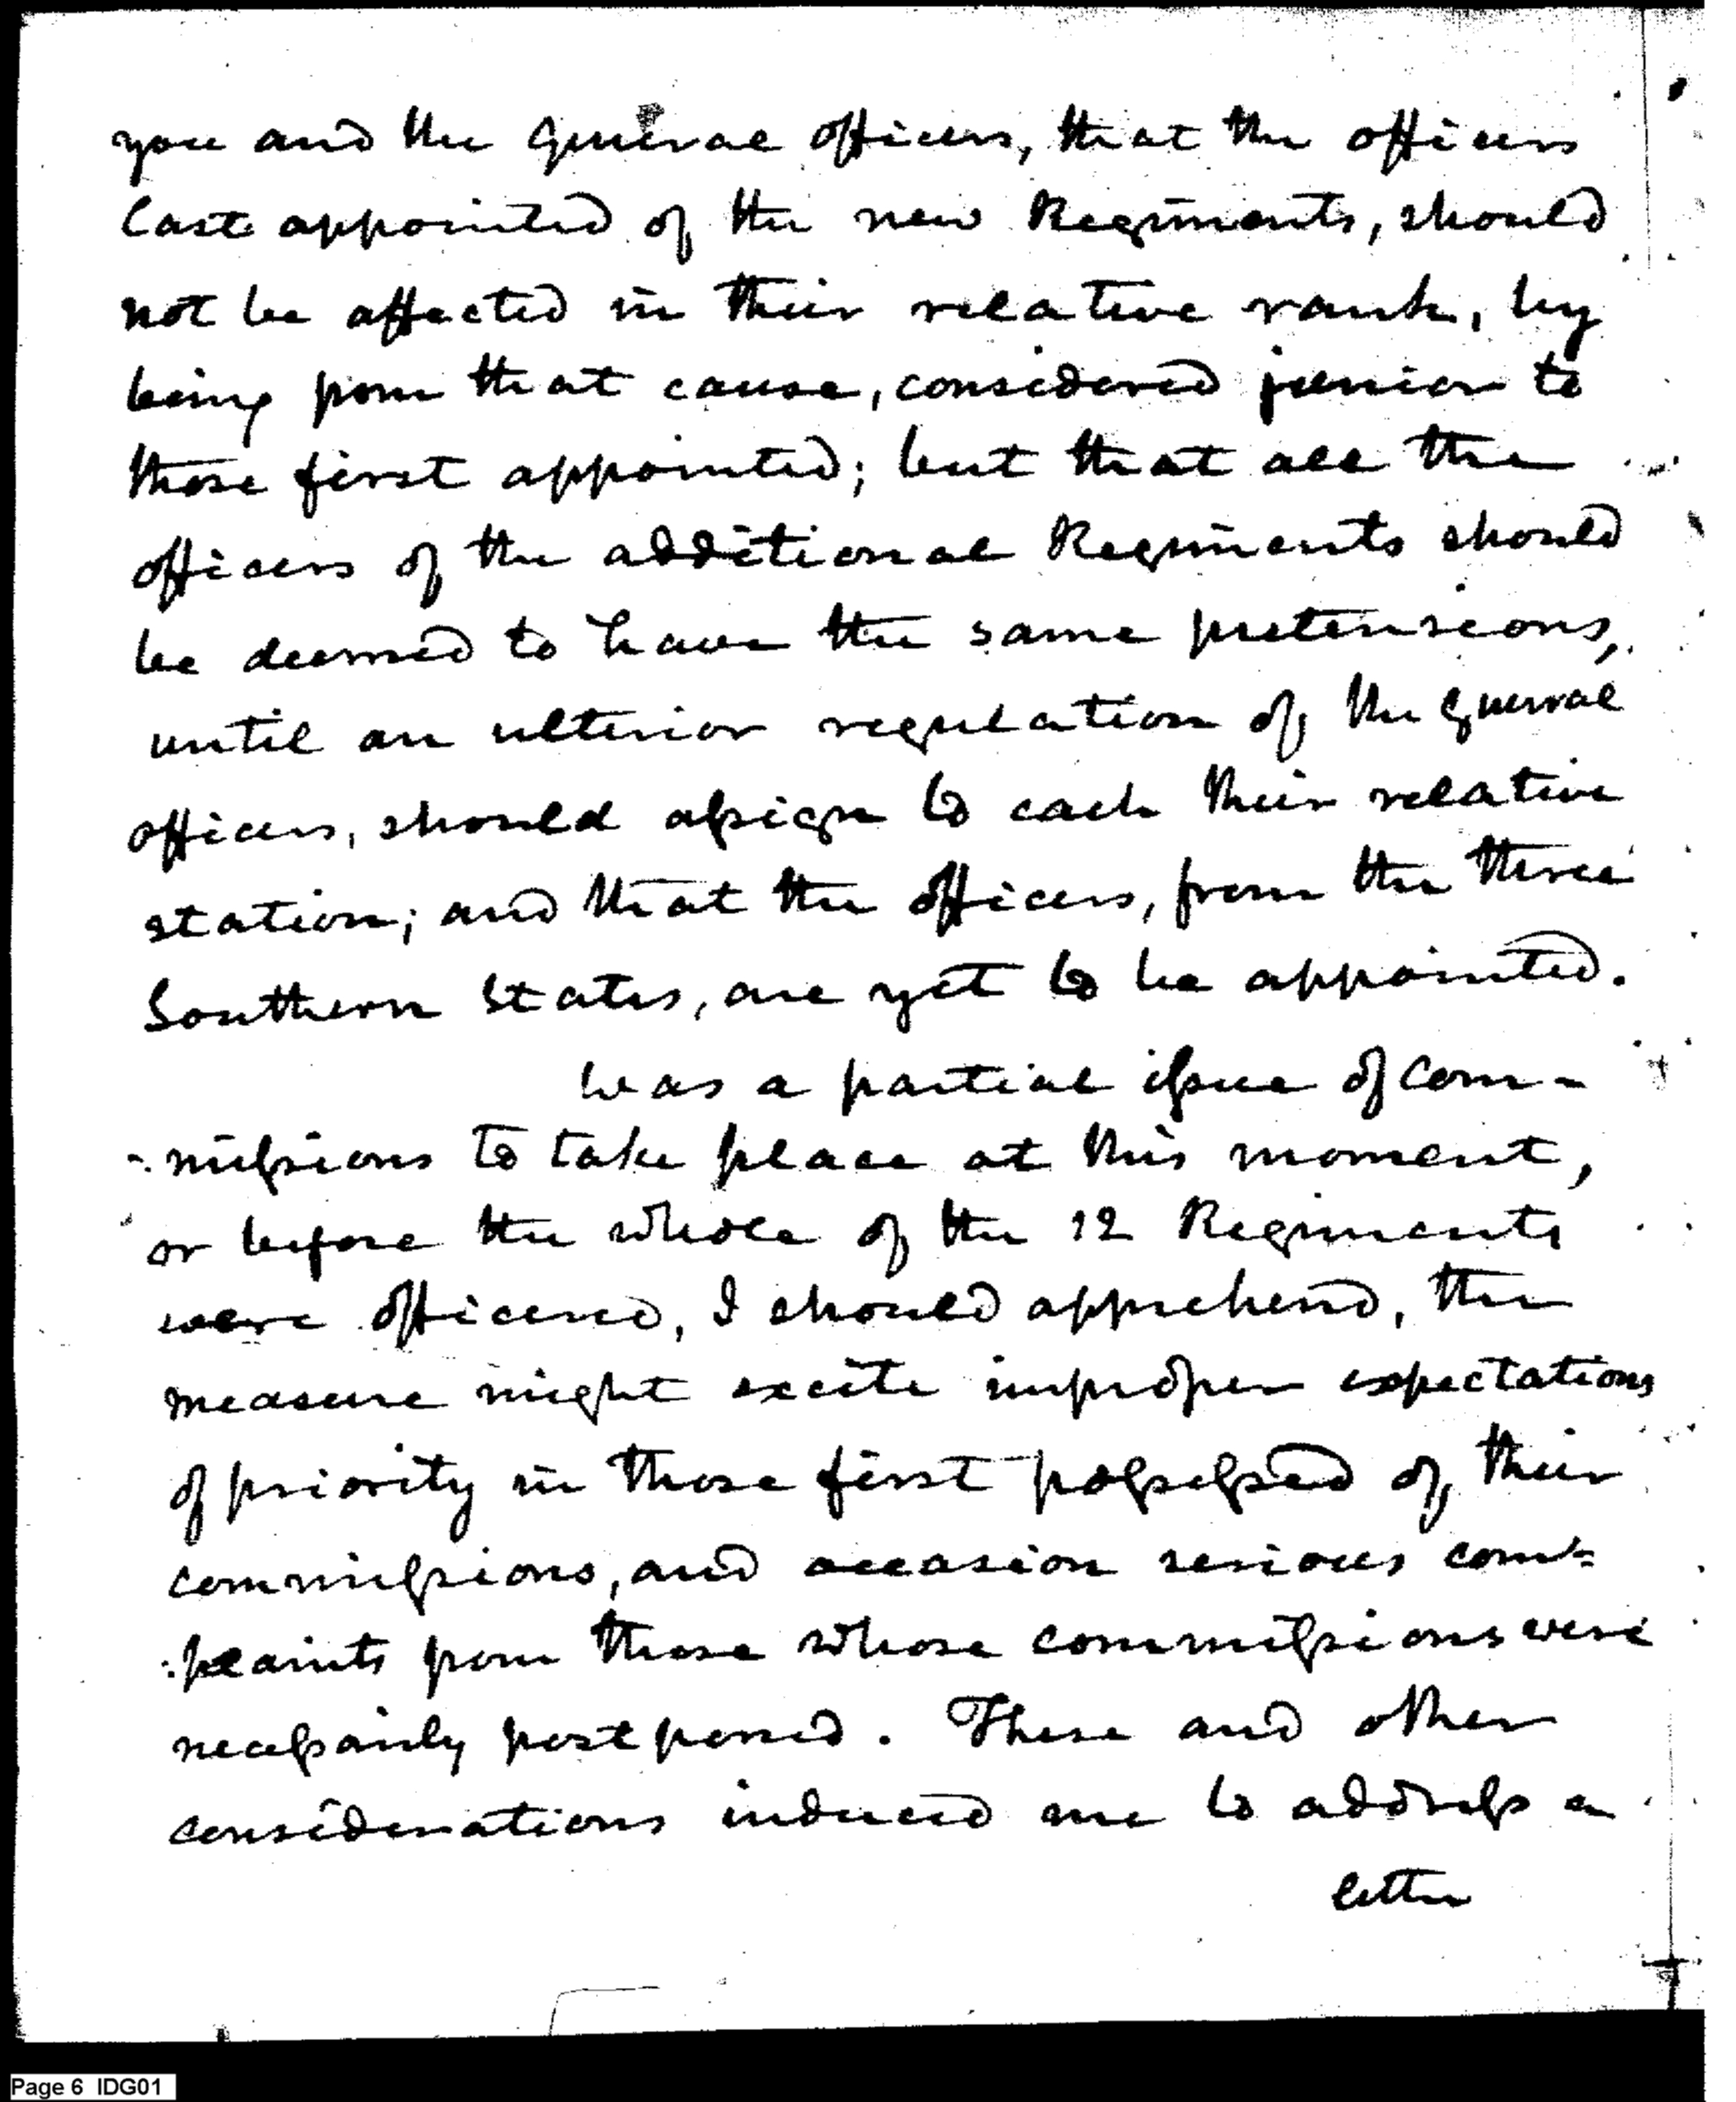 you and the general officers, that the officers
last appointed of the new Regiments, should
not be affected in their relative rank, by
being from that cause, considered junior to
those first appointed; but that all the
officers of the additional Regiments should
be deemed to have the same pretensions,
until an ulterior regulation of the general
officers, should assign to each their relative
station; and that the officers, from the three
Southern States, are yet to be appointed.
Was a partial issue of com-
-missions to take place at this moment,
or before the whole of the 12 Regiments
were officered, I should apprehend, the
measure might excite improper expectations
of priority in those first possessed of, their
commissions, and occasion serious com=
:plaints from those whose commissions were
necessarily postponed. These and other
considerations induced me to address a
letter
Page 6 IDG01